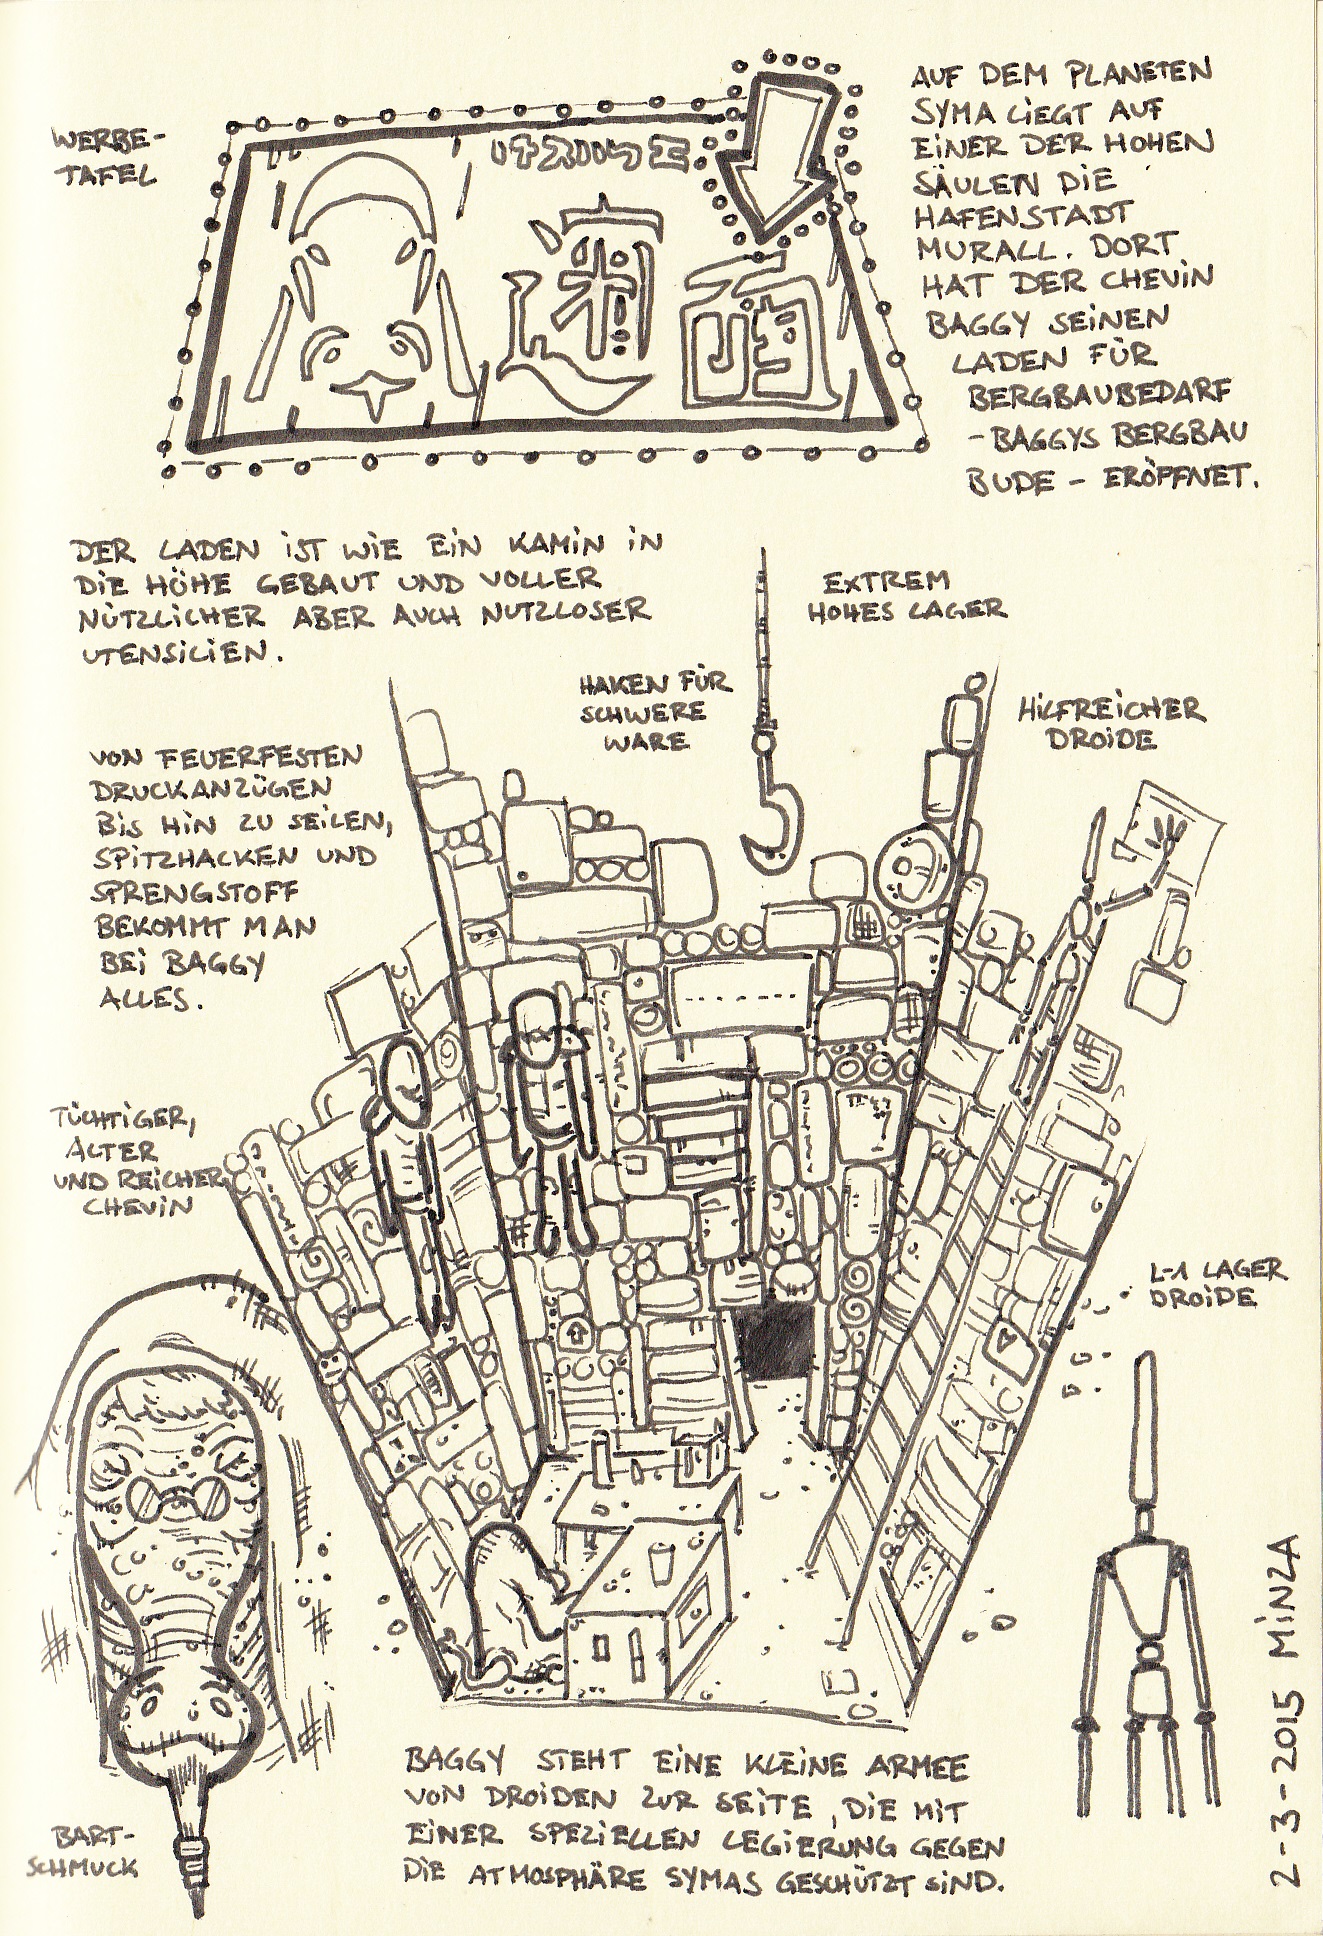 WERBE-
TAFEL
AUF DEM PLANETEN
SYMA LIEGT AUF
EINER DER HOHEN
SÄULEN DIE
HAFENSTADT
MURALL. DORT
HAT DER CHEVIN
BAGGY SEINEN
LADEN FÜR
BERGBAUBEDARF
- BAGGYS BERGBAU
BUDE - ERÖFFNET.
DER LADEN IST WIE EIN KAMIN IN
DIE HÖHE GEBAUT UND VOLLER
NÜTZLICHER ABER AUCH NUTZLOSER
UTENSILIEN.
EXTREM
HOHES LAGER
HAKEN FÜR
SCHWERE
WARE
HILFREICHER
DROIDE
VON FEUERFESTEN
DRUCKANZÜGEN
BIS HIN ZU SEILEN,
SPITZHACKEN UND
SPRENGSTOFF
BEKOMMT MAN
BEI BAGGY
ALLES.
TÜCHTIGER,
ALTER
UND REICHER
CHEVIN
L-1 LAGER
DROIDE
BAGGY STEHT EINE KLEINE ARMEE
VON DROIDEN ZUR SEITE, DIE MIT
EINER SPEZIELLEN LEGIERUNG GEGEN
DIE ATMOSPHÄRE SYMAS GESCHÜTZT SIND.
BART-
SCHMUCK
2-3-2015 MINZA